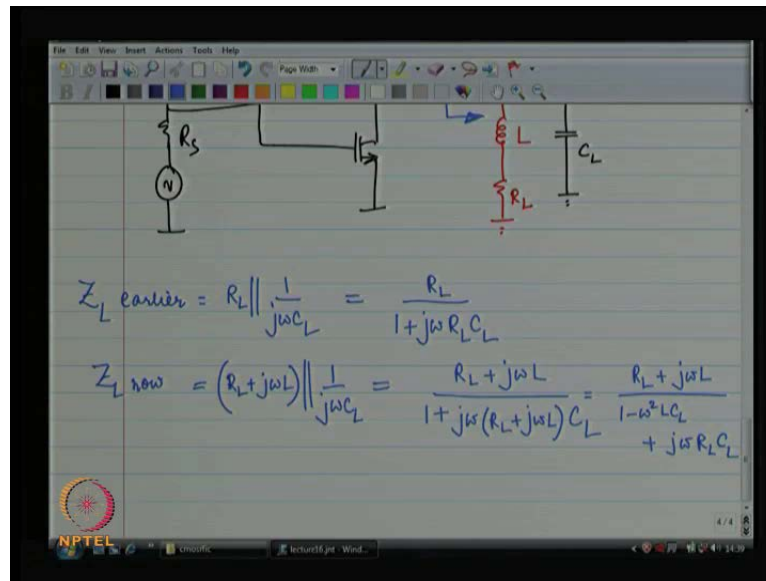 File Edit View Insert Actions Tools Help
Page Width
B I
R_S
L
C_L
R_L
Z_L earlier = R_L || 1/(jωC_L) = R_L/(1+jωR_LC_L)
Z_L now = (R_L+jωL) || 1/(jωC_L) = (R_L+jωL)/(1+jω(R_L+jωL)C_L) = (R_L+jωL)/(1-ω²LC_L + jωR_LC_L)
4/4
NPTEL
lecture16.jnt - Wind...
14:39